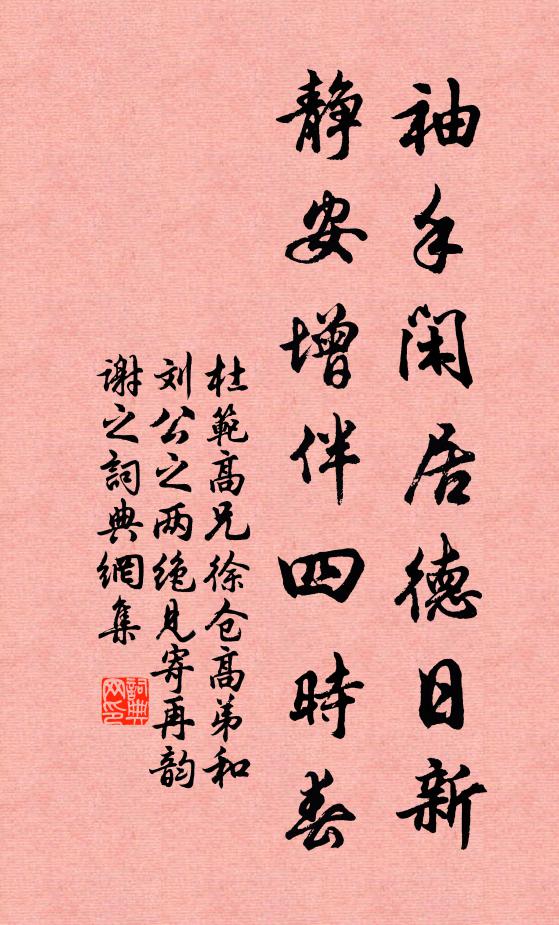 袖手闲居德日新
静安增伴四時春
杜範高兄徐仓高弟和
刘公之两绝见寄再韵
谢之詞典網集
詞典网印